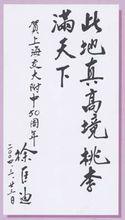 此地真高境桃李
满天下
贺上海交大附中50周年
徐匡迪
二〇〇四.三.廿三日